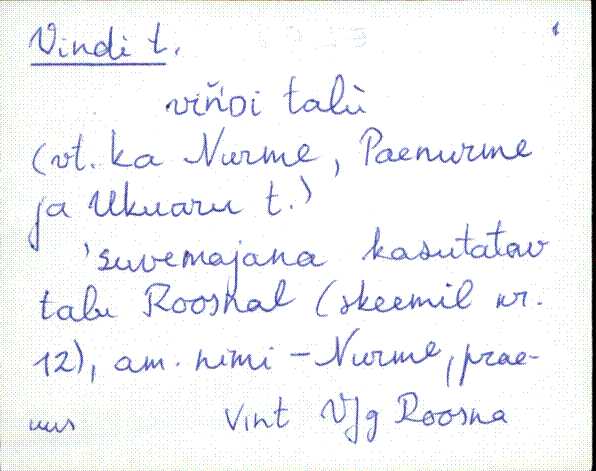 Vindi t.
vińDi talù
(vt. ka Nurme, Paenurme
ja Ukuaru t.)
'suvemajana kasutatav
talu Roosnal (skeemil nr.
12), am. nimi - Nurme, prae-
Vint VJg Roosna